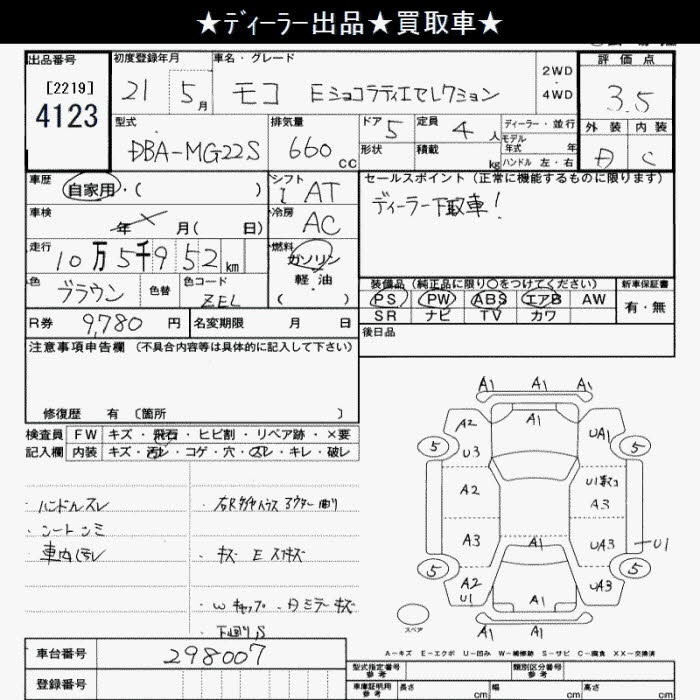 ★ディーラー出品★買取車★
出品番号
[2219]
4123
初度登録年月
21 5月
車名・グレード
モコ Eショコラティエセレクション
2WD
・
4WD
評価点
3.5
外装 内装
D C
型式
DBA-MG22S
排気量
660 cc
ドア 5
定員 4 人
形状
積載 kg
ディーラー・並行
モデル年式 年
ハンドル 左・右
車歴
自家用・( )
シフト
I AT
セールスポイント(正常に機能するものに限ります)
ディーラー下取車!
車検
年 月( 日)
冷房
AC
走行
10万5千952km
燃料
ガソリン
軽油
( )
色
ブラウン
色替
色コード
ZEL
装備品(純正品に限り○をつけてください)
PS PW ABS エアB AW
SR ナビ TV カワ
新車保証書
有・無
R券 9,780 円
名変期限 月 日
後日品
注意事項申告欄 (不具合内容等は具体的に記入して下さい)
修復歴 有 〔箇所 〕
検査員
記入欄
FW キズ・飛石・ヒビ割・リペア跡・×要
内装 キズ・汚レ・コゲ・穴・スレ・キレ・破レ
・ハンドルスレ
・シートシミ
・車内汚レ
・キズ E スリキズ
・下回りS
A1 A1 A1
A2 A1 UA1
U3
5 5
A2 U1
A3
A3 A1 UA3 U1
5 5
A2
U1 A1 UA3
A1 A1
スペア
A-キズ E-エクボ U-凹み W-補修跡 S-サビ C-腐食 XX-交換済
車台番号 298007
登録番号
型式指定番号
参考
類別区分番号
参考
車庫証明用
参考
長さ cm
幅 cm
高さ cm